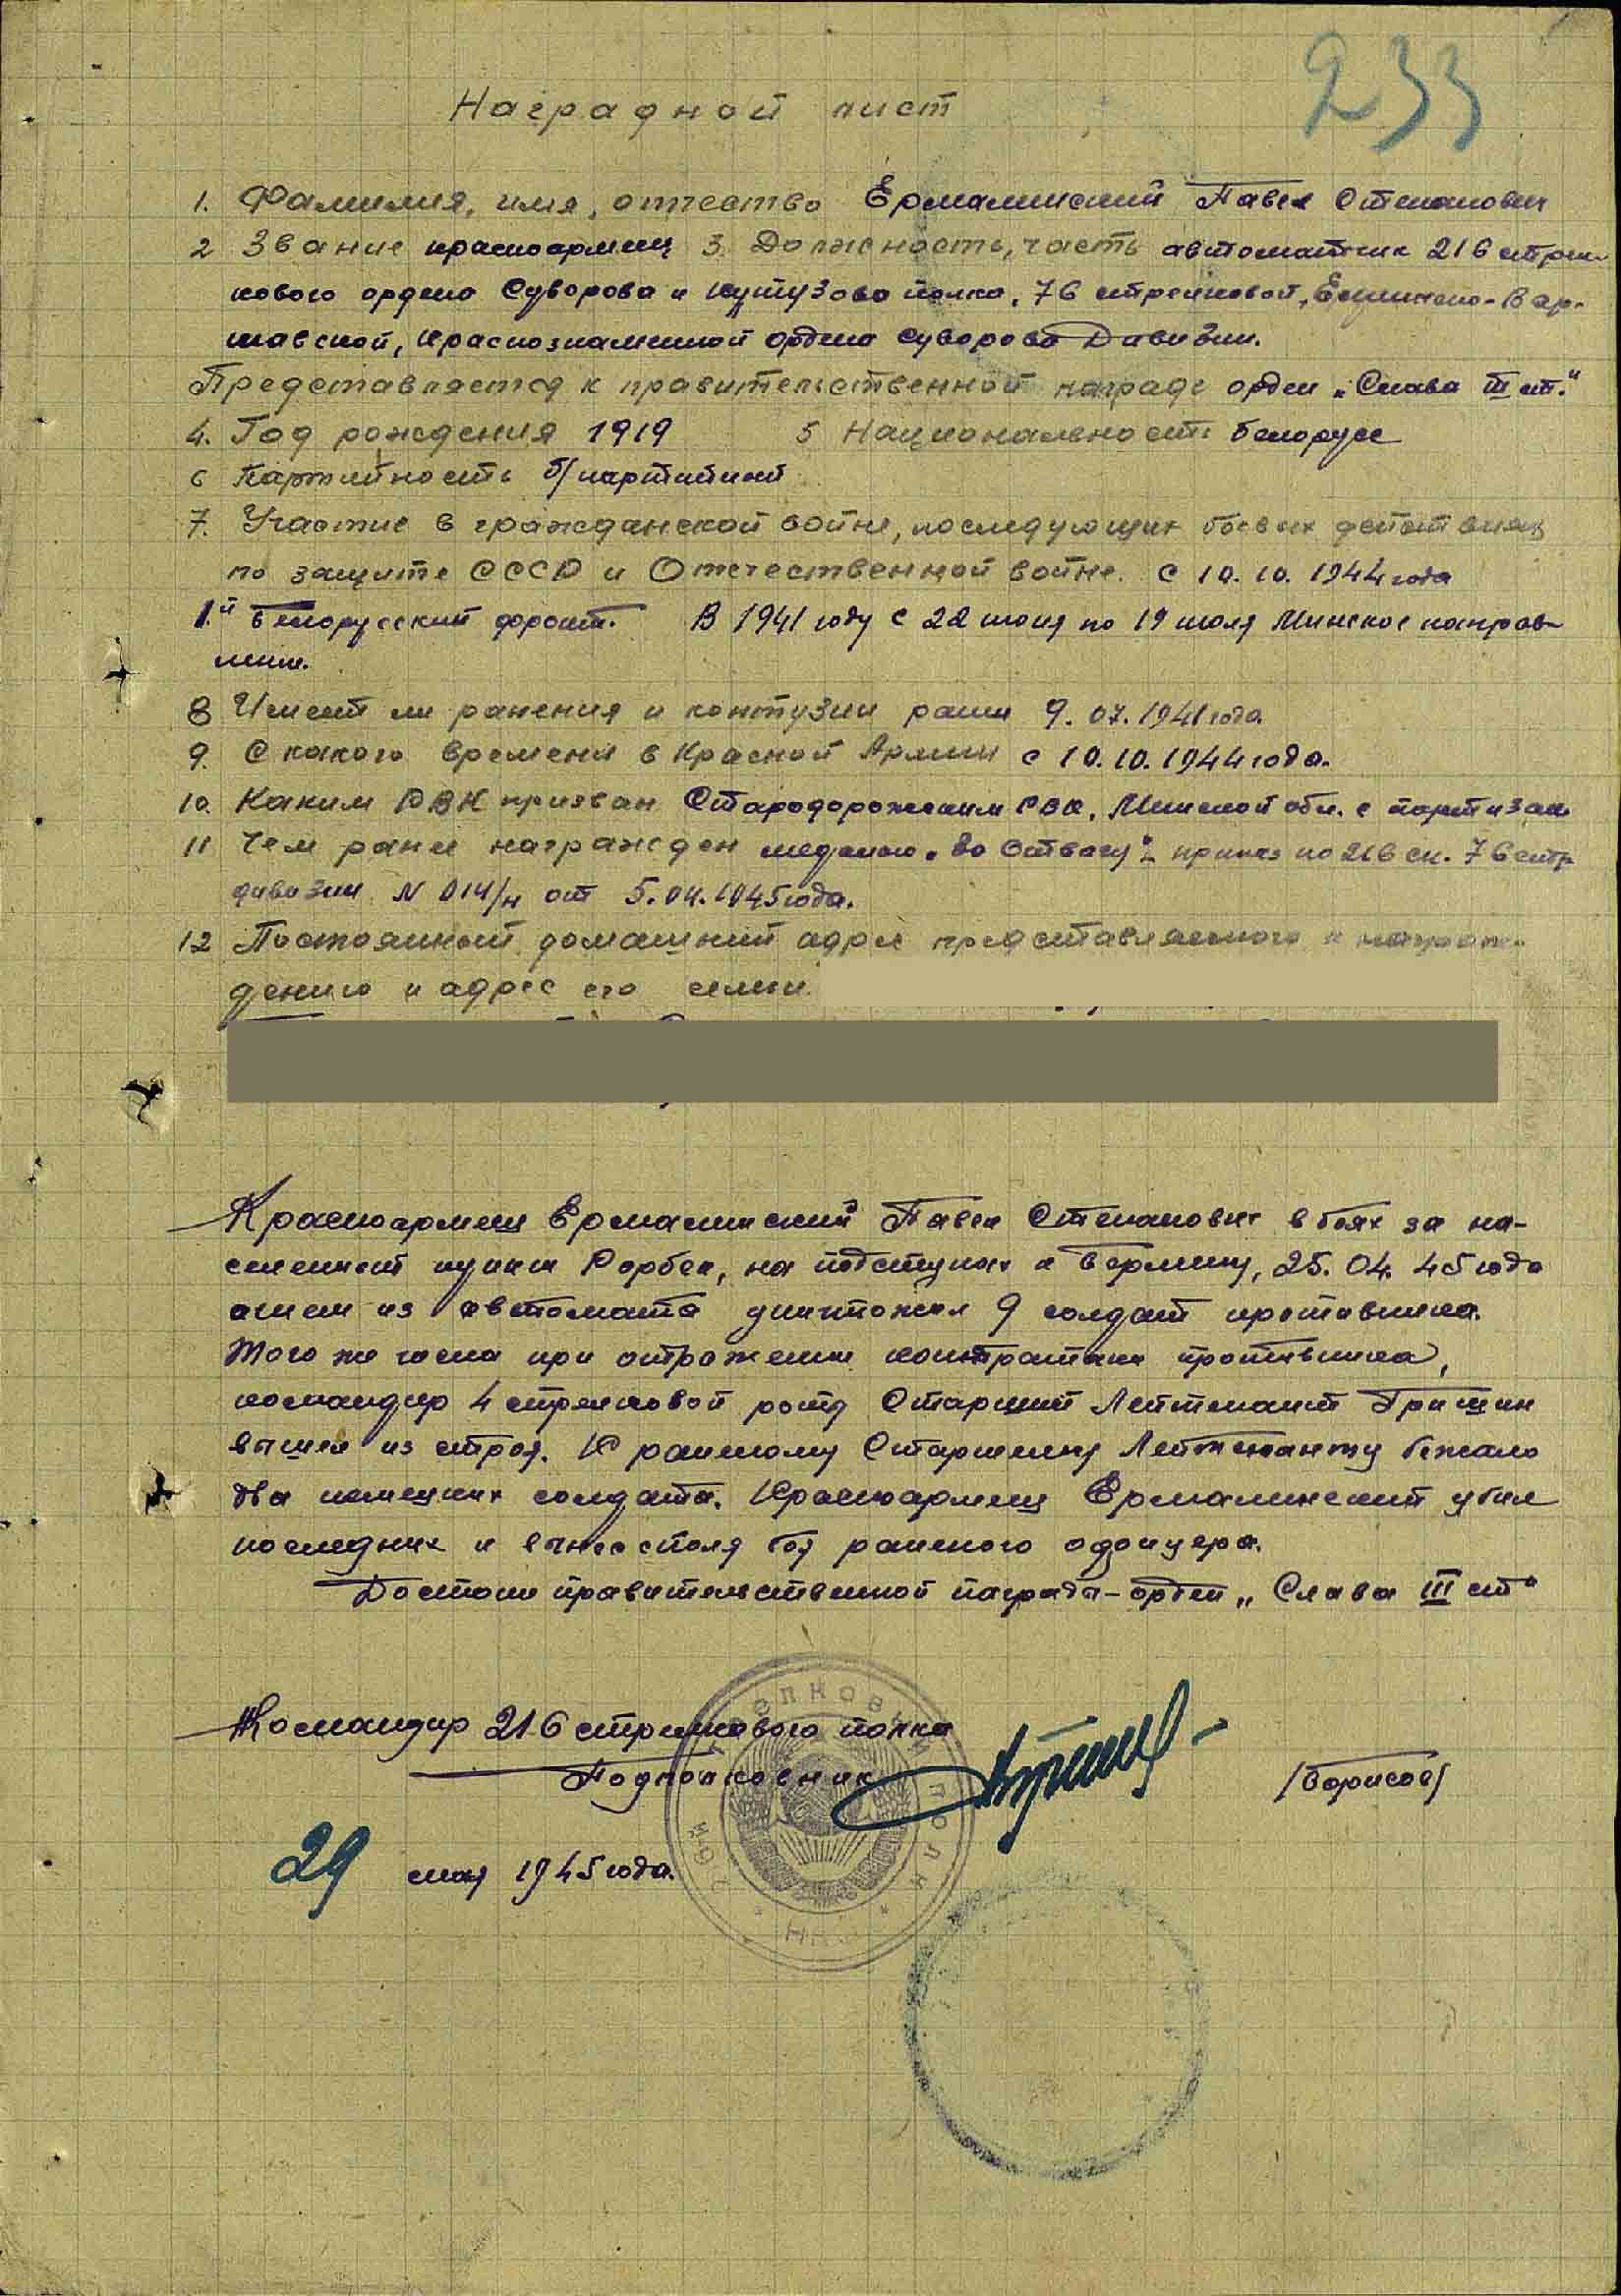 233
Наградной лист
1. Фамилия, имя, отчество Ермалинский Павел Степанович
2 Звание красноармеец 3. Должность, часть автоматчик 216 стрел-
кового ордена Суворова и Кутузова полка, 76 стрелковой, Ельнинско-Вар-
шавской, Краснознаменной ордена Суворова Дивизии.
Представляется к правительственной награде орден „Слава III ст."
4. Год рождения 1919 5 Национальность белорусс
6 Партийность б/партийный
7. Участие в гражданской войне, последующих боевых действиях
по защите СССР и Отечественной войне. С 10.10.1944 года
1й Белорусский фронт. В 1941 году с 22 июня по 19 июля Минское направ-
ление.
8 Имеет ли ранения и контузии ранен 9.07.1941 года
9. С какого времени в Красной Армии с 10.10.1944 года.
10. Каким РВК призван Стародорожским РВК, Минской обл. с партизан
11 Чем ранее награжден медалью „За Отвагу" - приказ по 216 сп. 76 стр
дивизии N 014/н от 5.04.1945 года.
12 Постоянный домашний адрес представляемого к награж-
дению и адрес его семьи
Красноармеец Ермалинский Павел Степанович в боях за на-
селенный пункт Рорбек, на подступах к Берлину, 25.04.45 года
огнем из автомата уничтожил 9 солдат противника.
Того же числа при отражении контратаки противника,
командир 4 стрелковой роты Старший Лейтенант Гришин
вышел из строя. К раненому Старшему Лейтенанту бежало
два немецких солдата. Красноармеец Ермалинский убил
последних и вынес с поля боя раненого офицера.
Достоин правительственной награды - орден „Слава III ст"
Командир 216 стрелкового полка
Подполковник /Борисов/
29 мая 1945 года.
СТРЕЛКОВЫЙ ПОЛК